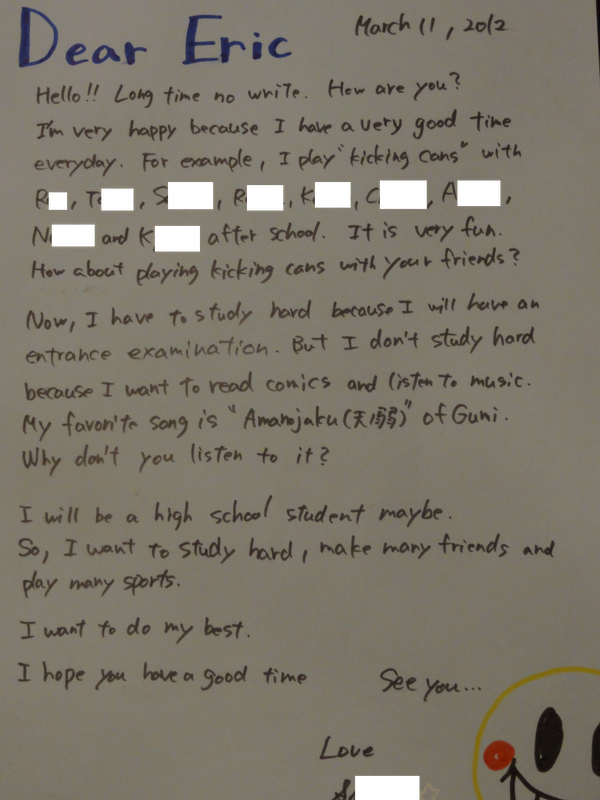 Dear Eric
March 11, 2012
Hello!! Long time no write. How are you?
I'm very happy because I have a very good time
everyday. For example, I play "kicking cans" with
R , T , S , R , K , C , A ,
N and K after school. It is very fun.
How about playing kicking cans with your friends?
Now, I have to study hard because I will have an
entrance examination. But I don't study hard
because I want to read comics and listen to music.
My favorite song is "Amanojaku(天弱)" of Gumi.
Why don't you listen to it?
I will be a high school student maybe.
So, I want to study hard, make many friends and
play many sports.
I want to do my best.
I hope you have a good time
See you...
Love